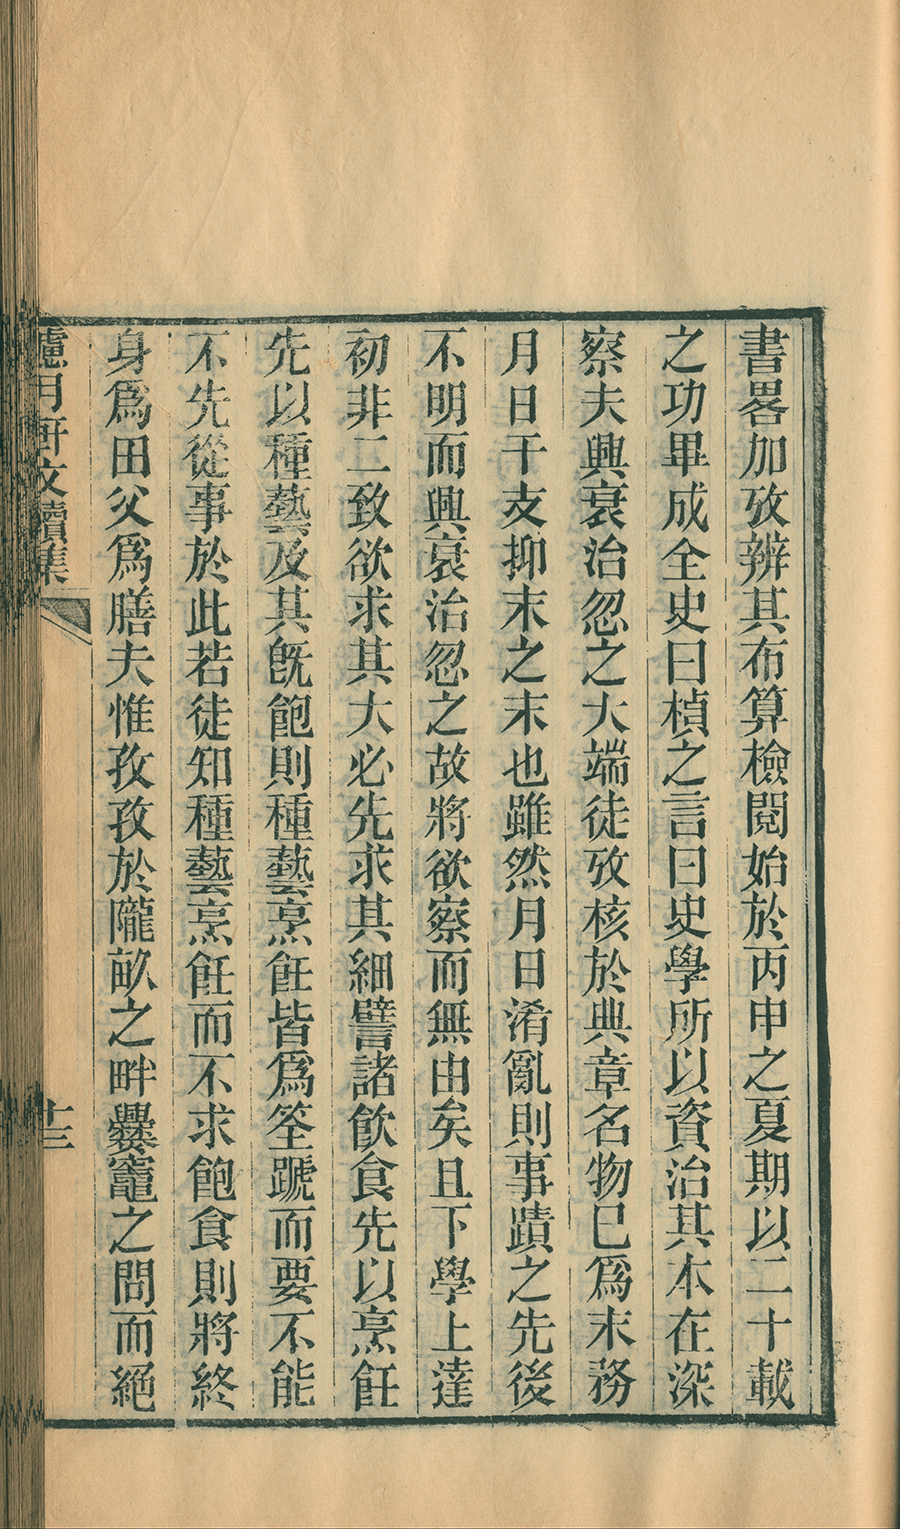 書畧加攷辨其布算檢閱始於丙申之夏期以二十載
之功畢成全史曰楨之言曰史學所以資治其本在深
察夫興衰治忽之大端徒攷核於典章名物已爲末務
月日干支抑末之末也雖然月日淆亂則事蹟之先後
不明而興衰治忽之故將欲察而無由矣且下學上達
初非二致欲求其大必先求其細譬諸飲食先以烹飪
先以種藝及其旣飽則種藝烹飪皆爲筌蹏而要不能
不先從事於此若徒知種藝烹飪而不求飽食則將終
身爲田父爲膳夫惟孜孜於隴畝之畔爨竈之間而絕
月 文續集
十三